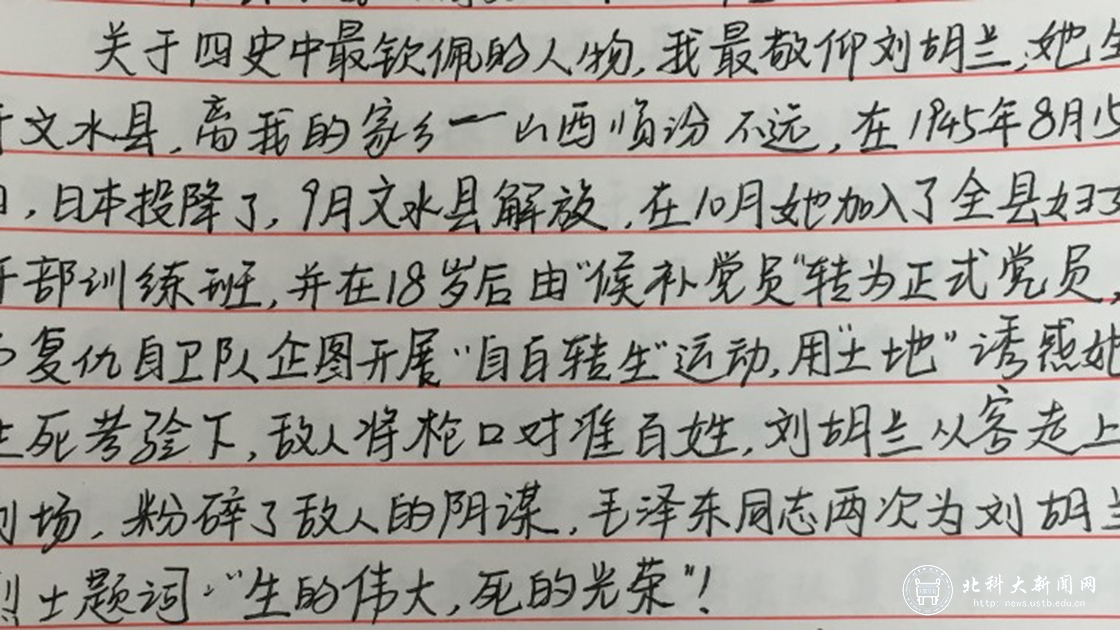 关于四史中最钦佩的人物,我最敬仰刘胡兰,她
文水县,离我的家乡一山西临汾不远,在1945年8月
,日本投降了,9月文水县解放,在10月她加入了全县妇
干部训练班,并在18岁后由"候补党员"转为正式党员,
复仇自卫队企图开展"自白转生"运动,用"土地"诱惑她
死考验下,敌人将枪口对准百姓,刘胡兰从容走上
场,粉碎了敌人的阴谋,毛泽东同志两次为刘胡兰
烈士题词:"生的伟大,死的光荣"!
北科大新闻网
http: news.ustb.edu.cn